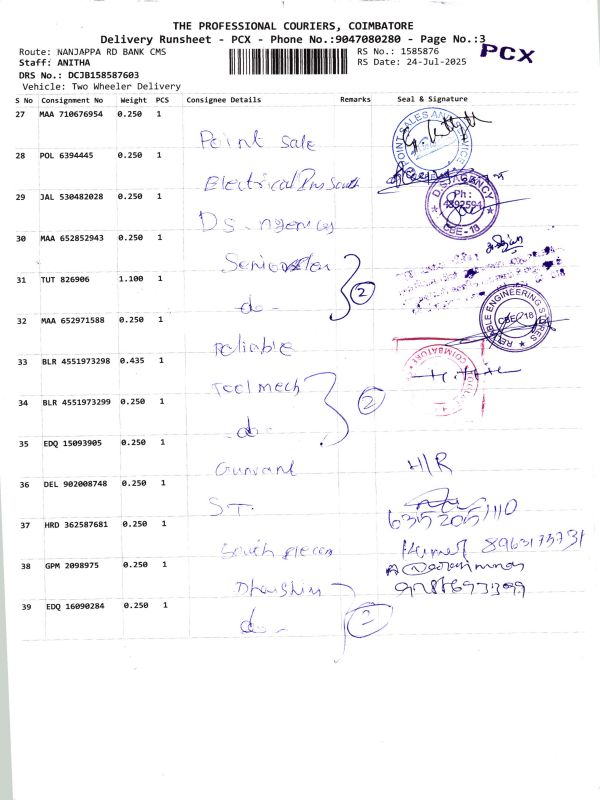 THE PROFESSIONAL COURIERS, COIMBATORE
Delivery Runsheet - PCX - Phone No.:9047080280 - Page No.:3
PCX
Route: NANJAPPA RD BANK CMS
RS No.: 1585876
Staff: ANITHA
RS Date: 24-Jul-2025
DRS No.: DCJB158587603
Vehicle: Two Wheeler Delivery
S No Consignment No Weight PCS Consignee Details Remarks Seal & Signature
27 MAA 710676954 0.250 1
Point Sale
28 POL 6394445 0.250 1
Electrical
29 JAL 530482028 0.250 1
DS. Agencies
D.S. AGENCY
Ph:
4392594
CBE-18
30 MAA 652852943 0.250 1
31 TUT 826906 1.100 1
do - 2
32 MAA 652971588 0.250 1
reliable
RELIABLE ENGINEERING STORES
CBE-18
33 BLR 4551973298 0.435 1
Tool mech
COIMBATORE
34 BLR 4551973299 0.250 1
do - 2
35 EDQ 15093905 0.250 1
Gunvant H/R
36 DEL 902008748 0.250 1
ST.
37 HRD 362587681 0.250 1
South
38 GPM 2098975 0.250 1
39 EDQ 16090284 0.250 1
do - 2